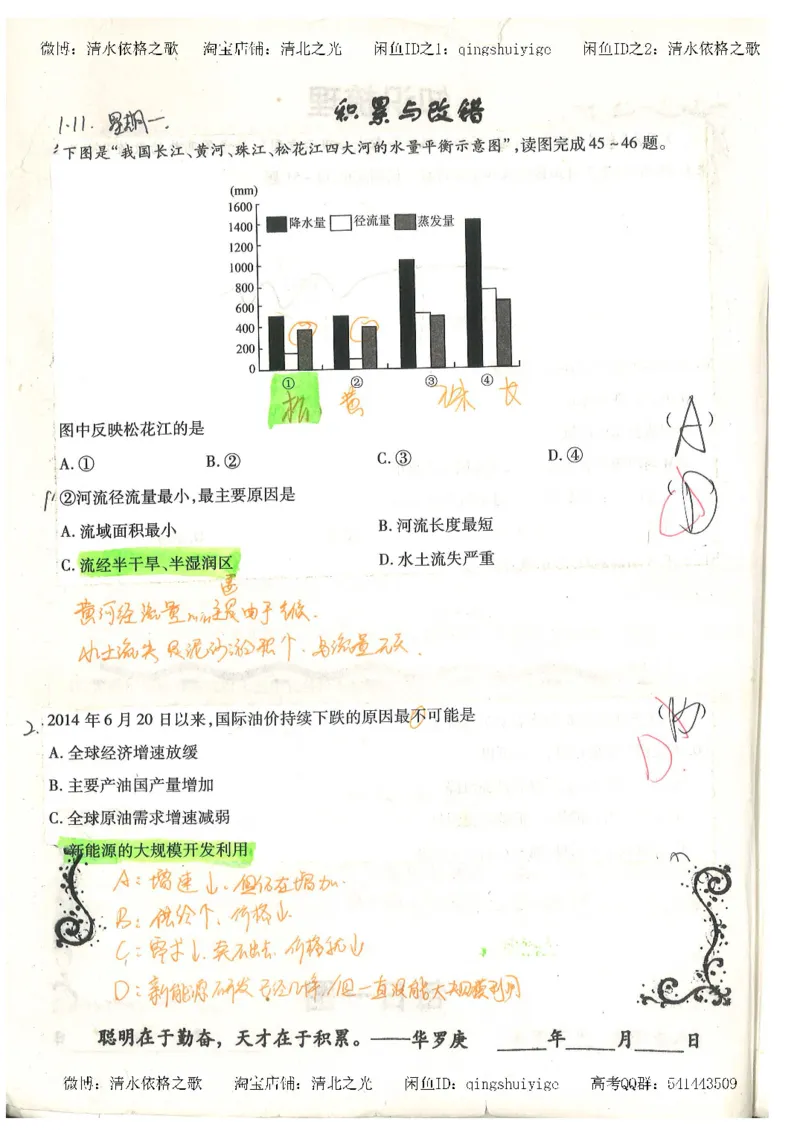 微博：清水依格之歌 淘宝店铺：清北之光 闲鱼ID之1：qingshuiyige 闲鱼ID之2：清水依格之歌
积累与改错
1.11. 星期一.
下图是“我国长江、黄河、珠江、松花江四大河的水量平衡示意图”,读图完成45～46题。
(mm)
1600
1400
1200
1000
800
600
400
200
0
降水量 径流量 蒸发量
① ② ③ ④
松 黄 珠 长
图中反映松花江的是 (A)
A.① B.② C.③ D.④
②河流径流量最小,最主要原因是 (D)
A. 流域面积最小 B. 河流长度最短
C. 流经半干旱、半湿润区 D. 水土流失严重
2. 2014年6月20日以来,国际油价持续下跌的原因最不可能是
D
A. 全球经济增速放缓
B. 主要产油国产量增加
C. 全球原油需求增速减弱
新能源的大规模开发利用
A：增速↓，但仍在增加.
B：供给个、价格↓.
C：需求↓，卖不出去，价格就↓
D：新能源研发已经几年，但一直没能大规模利用
聪明在于勤奋，天才在于积累。——华罗庚 年 月 日
微博：清水依格之歌 淘宝店铺：清北之光 闲鱼ID：qingshuiyige 高考QQ群：541443509